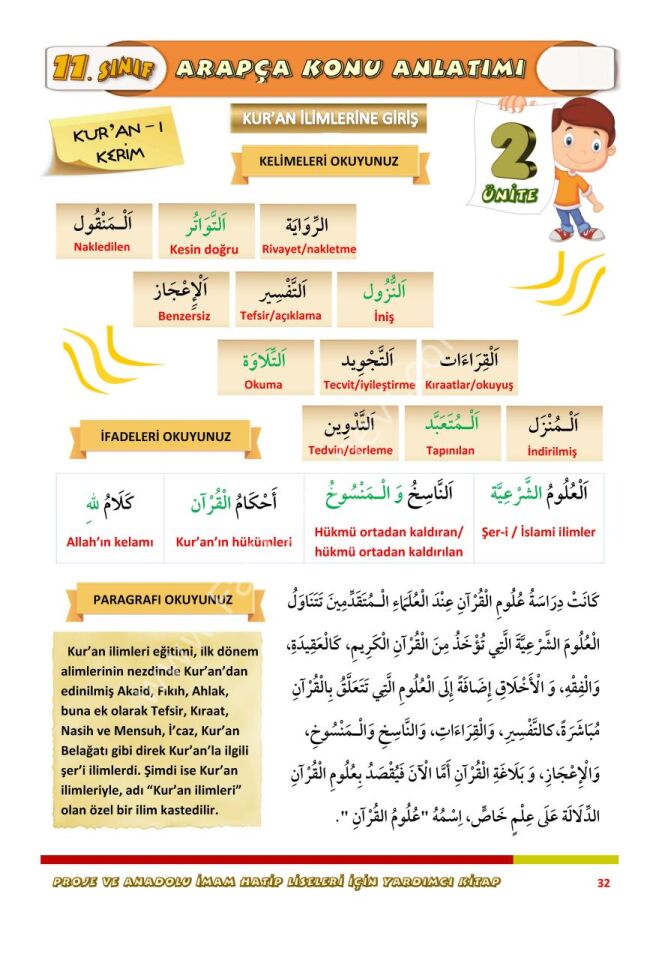 11. SINIF ARAPÇA KONU ANLATIMI
KUR'AN - I
KERİM
KUR'AN İLİMLERİNE GİRİŞ
KELİMELERİ OKUYUNUZ
2
ÜNİTE
اَلرِّوَايَة
Rivayet/nakletme
اَلتَّوَاتُر
Kesin doğru
اَلْـمَنْقُول
Nakledilen
اَلنُّزُول
İniş
اَلتَّفْسِير
Tefsir/açıklama
اَلْإِعْجَاز
Benzersiz
اَلْقِرَاءَات
Kıraatlar/okuyuş
اَلتَّجْوِيد
Tecvit/iyileştirme
اَلتِّلَاوَة
Okuma
اَلْـمُنْزَل
İndirilmiş
اَلْـمُتَعَبَّد
Tapınılan
اَلتَّدْوِين
Tedvin/derleme
İFADELERİ OKUYUNUZ
اَلْعُلُومُ الشَّرْعِيَّة
Şer-i / İslami ilimler
اَلنَّاسِخُ وَ الْـمَنْسُوخُ
Hükmü ortadan kaldıran/
hükmü ortadan kaldırılan
أَحْكَامُ الْقُرْآن
Kur'an'ın hükümleri
كَلَامُ للهِ
Allah'ın kelamı
PARAGRAFI OKUYUNUZ
كَانَتْ دِرَاسَةُ عُلُومِ الْقُرْآنِ عِنْدَ الْعُلَمَاءِ الْـمُتَقَدِّمِينَ تَتَنَاوَلُ
الْعُلُومَ الشَّرْعِيَّةَ الَّتِي تُؤْخَذُ مِنَ الْقُرْآنِ الْكَرِيمِ، كَالْعَقِيدَةِ،
وَالْفِقْهِ، وَ الْأَخْلَاقِ إِضَافَةً إِلَى الْعُلُومِ الَّتِي تَتَعَلَّقُ بِالْقُرْآنِ
مُبَاشَرَةً، كالتَّفْسِيرِ، وَالْقِرَاءَاتِ، وَالنَّاسِخِ وَالْـمَنْسُوخِ،
وَالْإِعْجَازِ، وَ بَلَاغَةِ الْقُرْآنِ أَمَّا الْآنَ فَيُقْصَدُ بِعُلُومِ الْقُرْآنِ
الدِّلَالَة عَلَى عِلْمٍ خَاصٍّ، اِسْمُهُ "عُلُومُ الْقُرْآنِ ".
Kur'an ilimleri eğitimi, ilk dönem
alimlerinin nezdinde Kur'an'dan
edinilmiş Akaid, Fıkıh, Ahlak,
buna ek olarak Tefsir, Kıraat,
Nasih ve Mensuh, İ'caz, Kur'an
Belağatı gibi direk Kur'an'la ilgili
şer'i ilimlerdi. Şimdi ise Kur'an
ilimleriyle, adı "Kur'an ilimleri"
olan özel bir ilim kastedilir.
PROJE VE ANADOLU İMAM HATİP LİSELERİ İÇİN YARDIMCI KİTAP
32